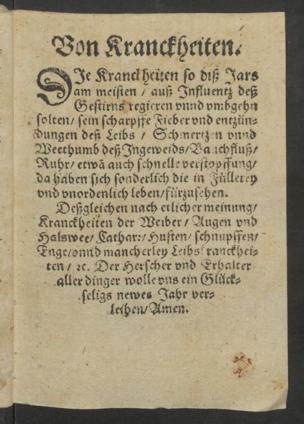 Von Kranckheiten.
DJe Kranckheiten so diß Jars
am meisten / auß Influentz deß
Gestirns regieren vnnd vmbgehn
solten / sein scharpffe Fieber vnd entzün-
dungen deß Leibs / Schmertzen vnnd
Weethumb deß Jngeweids / Bauchfluß /
Ruhr / etwā auch schnelle verstopffung /
da haben sich sonderlich die in Füllerey
vnd vnordenlich leben / fürzusehen.
Deßgleichen nach etlicher meinung /
Kranckheiten der Weiber / Augen vnd
Halswee / Cathar / Husten / schnupffen /
Enge / vnnd mancherley Leibs kranckhei-
ten / ꝛc. Der Herscher vnd Erhalter
aller dinger wolle vns ein Glück-
seligs newes Jahr ver-
leihen / Amen.